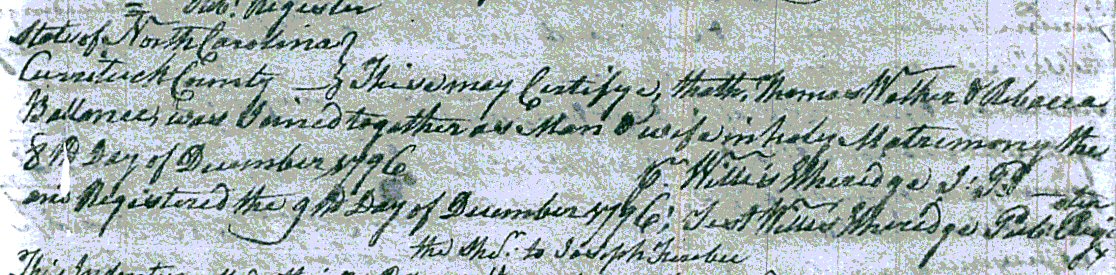 Pub. Register
State of North Carolina }
Currituck County } This may Certifye, thath, Thomas Walker & Rebacca
Ballance, was Joined together as Man & wife in holy Matrimony the
8th Day of December 1796
Willis Etheredge J. P.
and Registered the 9th Day of December 1796; Test Willis Etheredge Pub. Register
the Shr. to Joseph
This Indenture